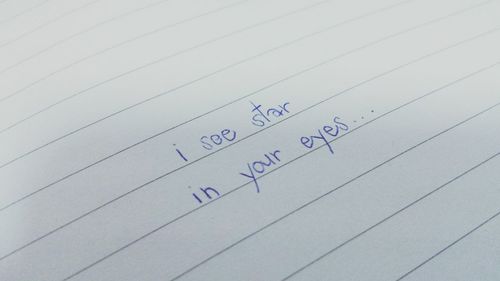 i see star
in your eyes...